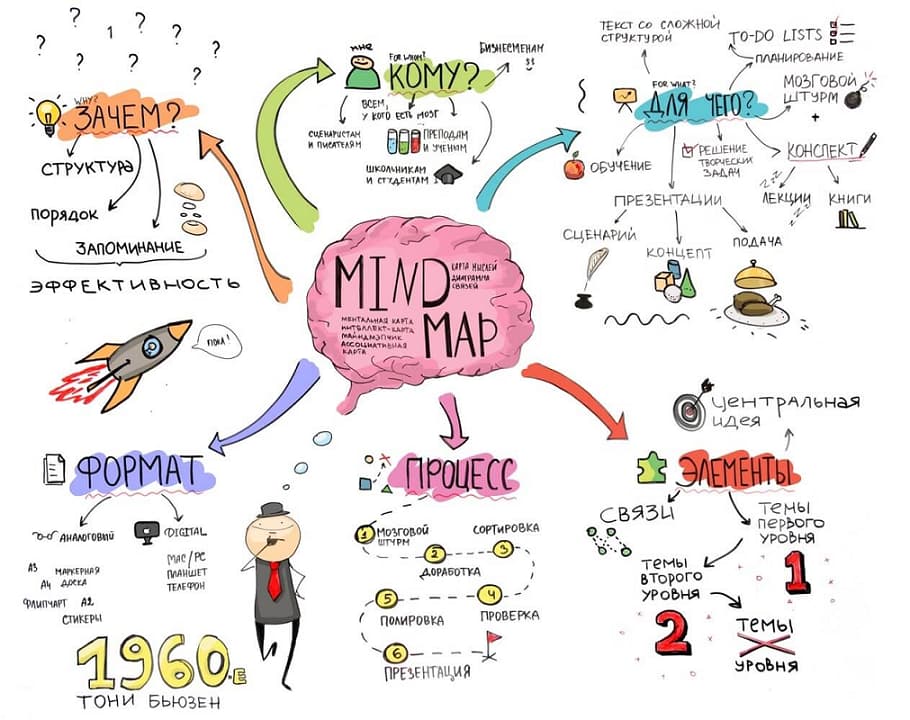 MIND
MAP
КАРТА МЫСЛЕЙ
ДИАГРАММА
СВЯЗЕЙ
МЕНТАЛЬНАЯ КАРТА
ИНТЕЛЛЕКТ-КАРТА
МАЙНДМЭПЧИК
АССОЦИАТИВНАЯ
КАРТА
? ? 1 ? ? ? ? ?
WHY?
ЗАЧЕМ?
СТРУКТУРА
ПОРЯДОК
ЗАПОМИНАНИЕ
ЭФФЕКТИВНОСТЬ
ПОКА!
МНЕ
FOR WHOM?
КОМУ?
БИЗНЕСМЕНАМ
$$
ВСЕМ,
У КОГО ЕСТЬ МОЗГ
СЦЕНАРИСТАМ
И ПИСАТЕЛЯМ
ПРЕПОДАМ
И УЧЕНЫМ
ШКОЛЬНИКАМ
И СТУДЕНТАМ
FOR WHAT?
ДЛЯ ЧЕГО?
ТЕКСТ СО СЛОЖНОЙ
СТРУКТУРОЙ
TO-DO LISTS
ПЛАНИРОВАНИЕ
МОЗГОВОЙ
ШТУРМ
+
КОНСПЕКТ
ZZZ
ЛЕКЦИИ
ZZZ
КНИГИ
РЕШЕНИЕ
ТВОРЧЕСКИХ
ЗАДАЧ
ОБУЧЕНИЕ
ПРЕЗЕНТАЦИИ
СЦЕНАРИЙ
КОНЦЕПТ
ПОДАЧА
ФОРМАТ
АНАЛОГОВЫЙ
А3
МАРКЕРНАЯ
ДОСКА
А4
ФЛИПЧАРТ
А2
СТИКЕРЫ
DIGITAL
MAC/PC
ПЛАНШЕТ
ТЕЛЕФОН
1960-Е
ТОНИ БЬЮЗЕН
ПРОЦЕСС
1 МОЗГОВОЙ
ШТУРМ
2
ДОРАБОТКА
СОРТИРОВКА
3
4
ПРОВЕРКА
5
ПОЛИРОВКА
6
ПРЕЗЕНТАЦИЯ
ЭЛЕМЕНТЫ
ЦЕНТРАЛЬНАЯ
ИДЕЯ
СВЯЗИ
ТЕМЫ
ПЕРВОГО
УРОВНЯ
1
ТЕМЫ
ВТОРОГО
УРОВНЯ
2
ТЕМЫ
X
УРОВНЯ